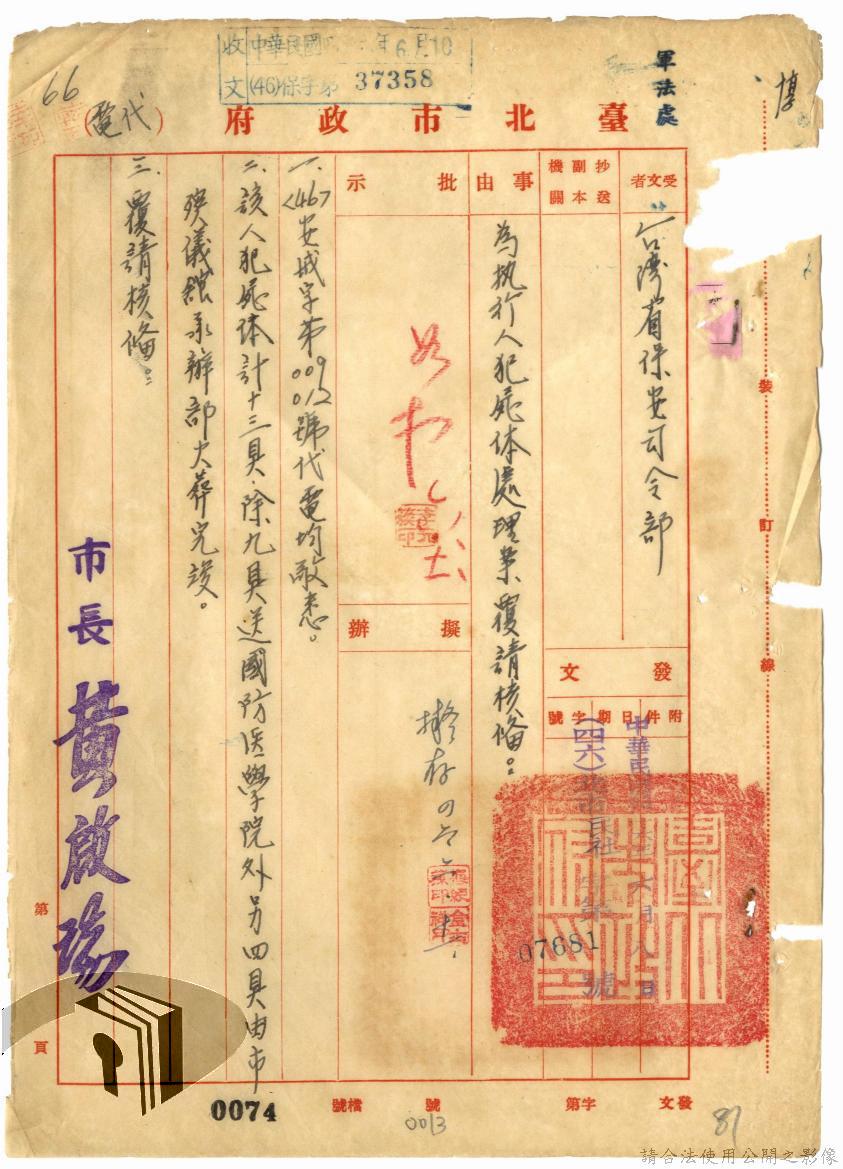 收文 中華民國 年6月10
(46)保字第 37358
66
軍法處
臺北市政府(代電)
受文者
台灣省保安司令部
抄送副本機關
事由
為執行人犯屍体處理案覆請核備。
批示
如擬
擬辦
擬存
發文
附件
日期
字號
中華民國 六月八日
(四六)北市民社字第 號
07681
一、(46)安成字第009 012號代電均敬悉。
二、該人犯屍体計十三具,除九具送國防医學院外另四具由市
殯儀館承辦部火葬完竣。
三、覆請核備。
市長 黃啟瑞
裝
訂
線
第 頁
發文 字第 號 檔號
0013
0074
81
請合法使用公開之影像